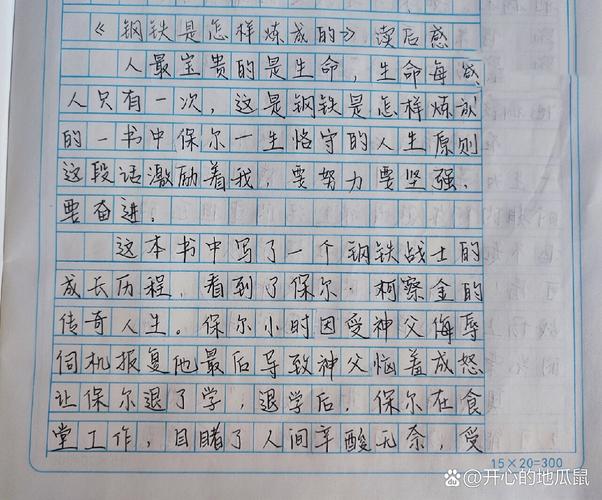 《钢铁是怎样炼成的》读后感
人最宝贵的是生命，生命每
人只有一次，这是钢铁是怎样炼成
的一书中保尔一生恪守的人生原则
这段话激励着我，要努力要坚强，
要奋进。
这本书中写了一个钢铁战士的
成长历程，看到了保尔·柯察金的
传奇人生。保尔小时因受神父侮辱
伺机报复他最后导致神父恼羞成怒
让保尔退了学，退学后，保尔在食
堂工作，目睹了人间辛酸无奈，受
15×20=300
@开心的地瓜鼠